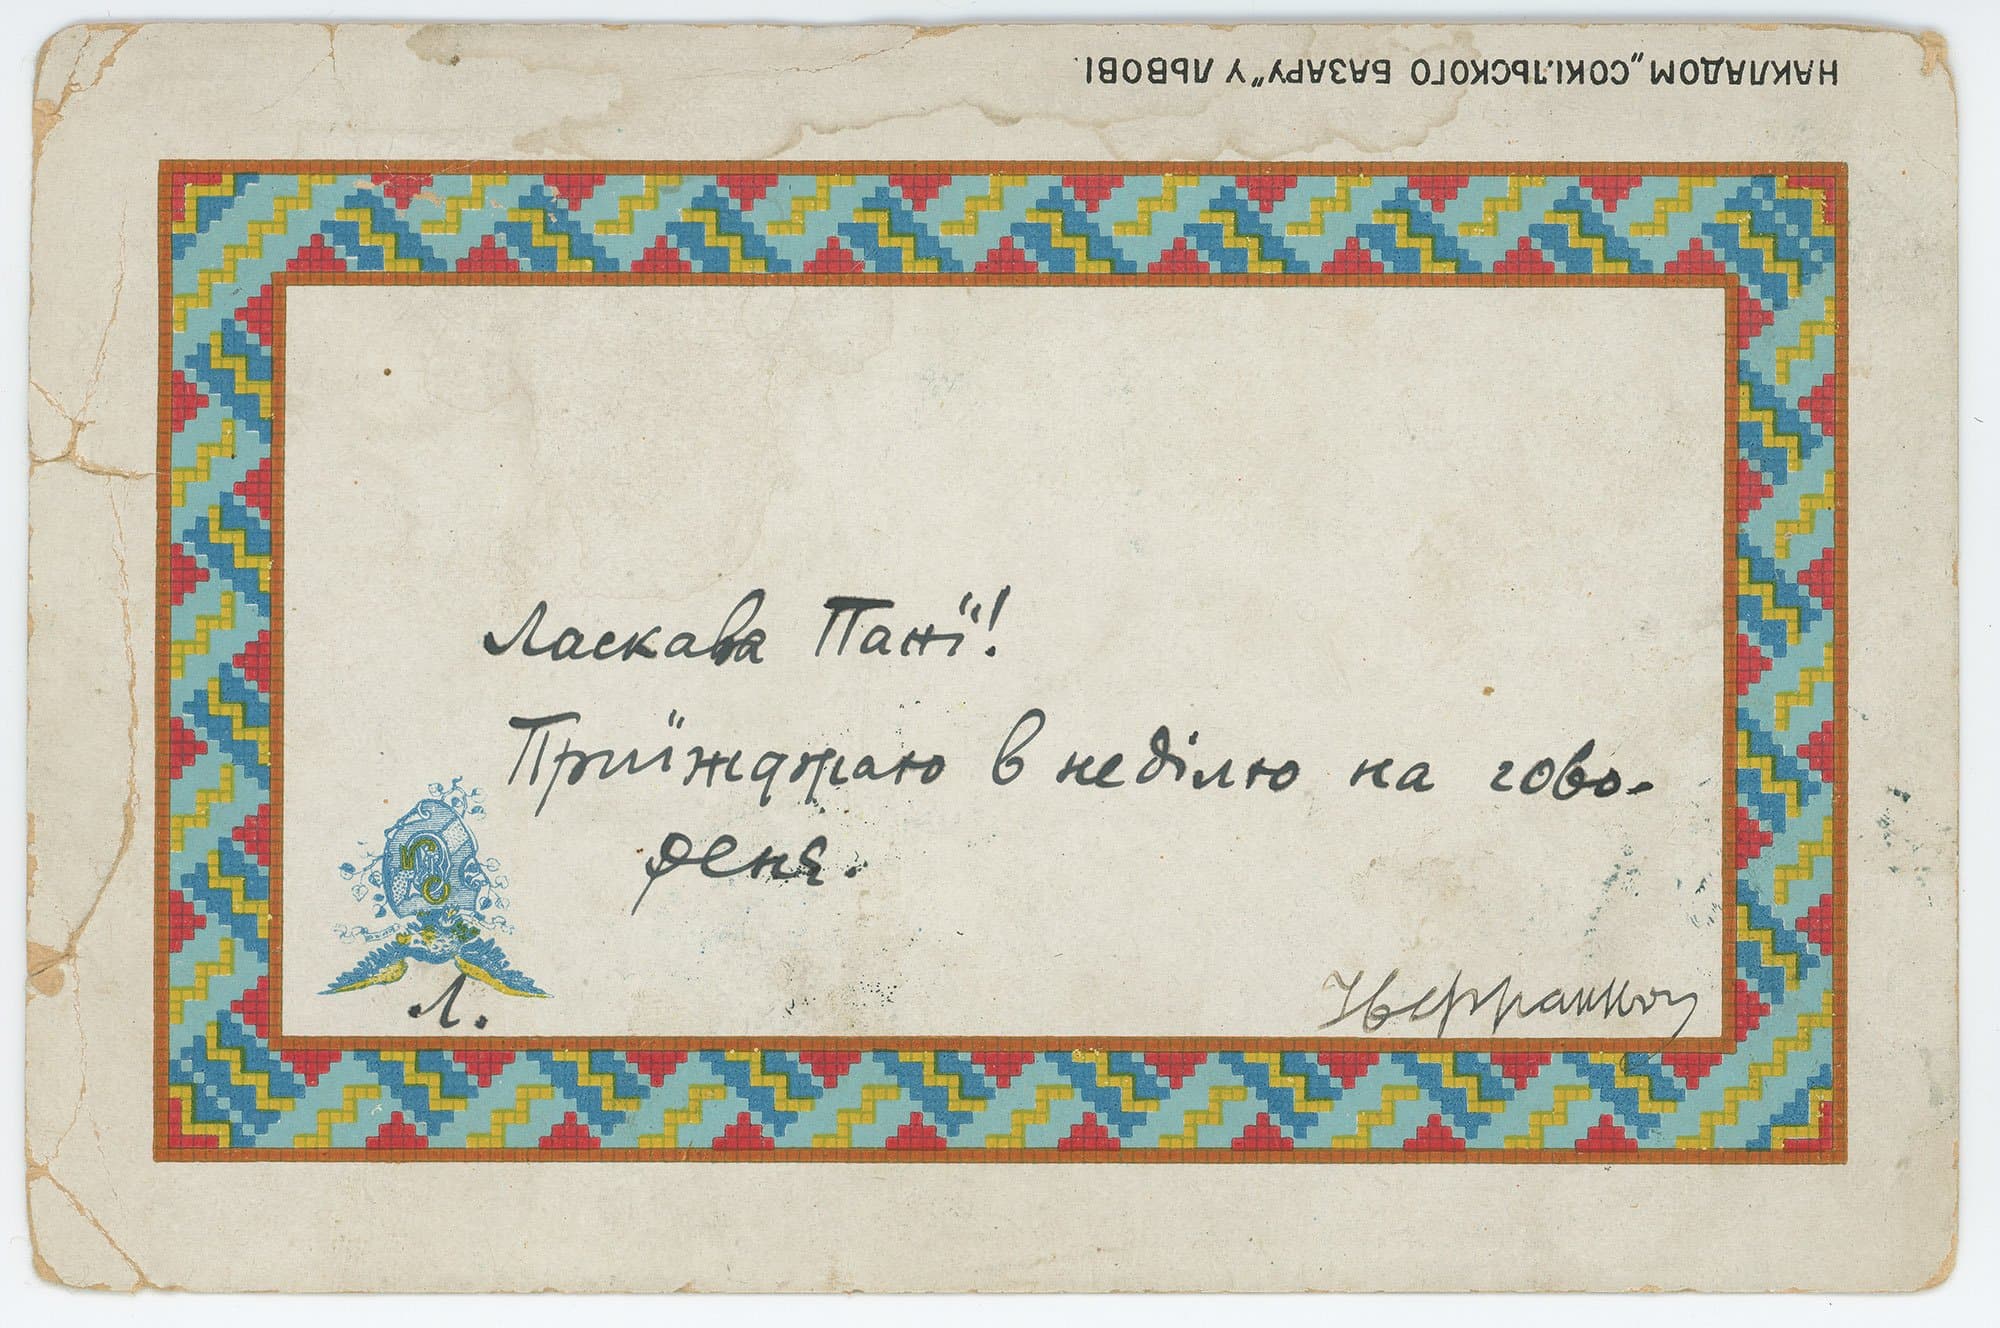 НАКЛАДОМ „СОКІЛЬСКОГО БАЗАРУ" У ЛЬВОВІ.
Ласкава Панї!
Приїжджаю в неділю на гово-
реня.
Л.